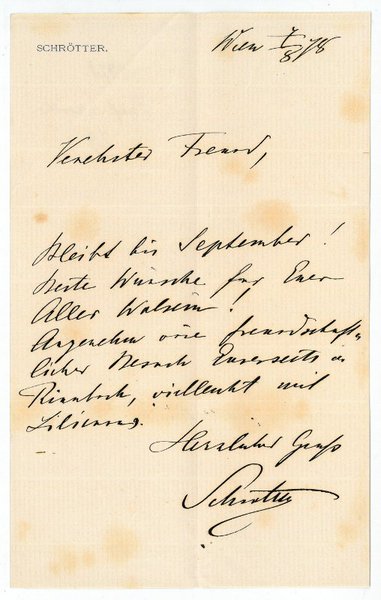 SCHRÖTTER.
Wien 7/8 878
Verehrter Freund,
Bleibt bis September!
Beste Wünsche für Euer
Aller Wolsein!
Angenehm wäre freundschaft=
licher Besuch Eurerseits in
vielleicht mit
Herzlicher Gruß
Schrötter